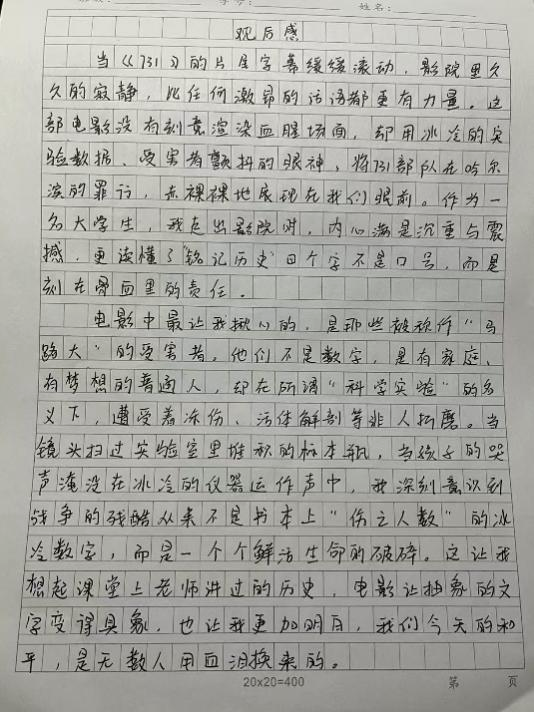 学号:
姓名:
观后感
当《731》的片尾字幕缓缓滚动，影院里久
久的寂静，比任何激昂的话语都更有力量。这
部电影没有刻意渲染血腥场面，却用冰冷的实
验数据、受害者颤抖的眼神，将731部队在哈尔
滨的罪行，赤裸裸地展现在我们眼前。作为一
名大学生，我走出影院时，内心满是沉重与震
撼，更读懂了"铭记历史"四个字不是口号，而是
刻在骨血里的责任。
电影中最让我揪心的，是那些被称作"马
路大"的受害者。他们不是数字，是有家庭、
有梦想的普通人，却在所谓"科学实验"的名
义下，遭受着冻伤、活体解剖等非人折磨。当
镜头扫过实验室里堆积的标本瓶，当孩子的哭
声淹没在冰冷的仪器运作声中，我深刻意识到
战争的残酷从来不是书本上"伤亡人数"的冰
冷数字，而是一个个鲜活生命的破碎。这让我
想起课堂上老师讲过的历史，电影让抽象的文
字变得具象，也让我更加明白，我们今天的和
平，是无数人用血泪换来的。
20x20=400 第 页